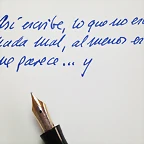 Así escribe, lo que no es
nada mal, al menos es
me parece... y